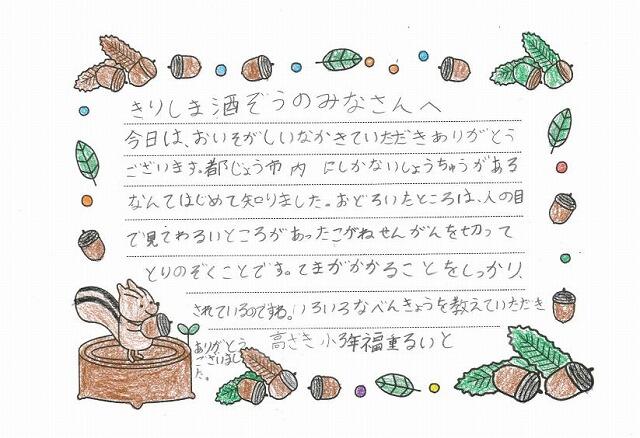 きりしま酒ぞうのみなさんへ
今日は、おいそがしいなかきていただきありがとう
ございます。都じょう市内にしかないしょうちゅうがある
なんてはじめて知りました。おどろいたところは、人の目
で見てわるいところがあったこがねせんがんを切って
とりのぞくことです。てまがかかることをしっかり、
されているのですね。いろいろなべんきょうを教えていただき
ありがとう
ございまし
た。
高さき小3年福重るいと